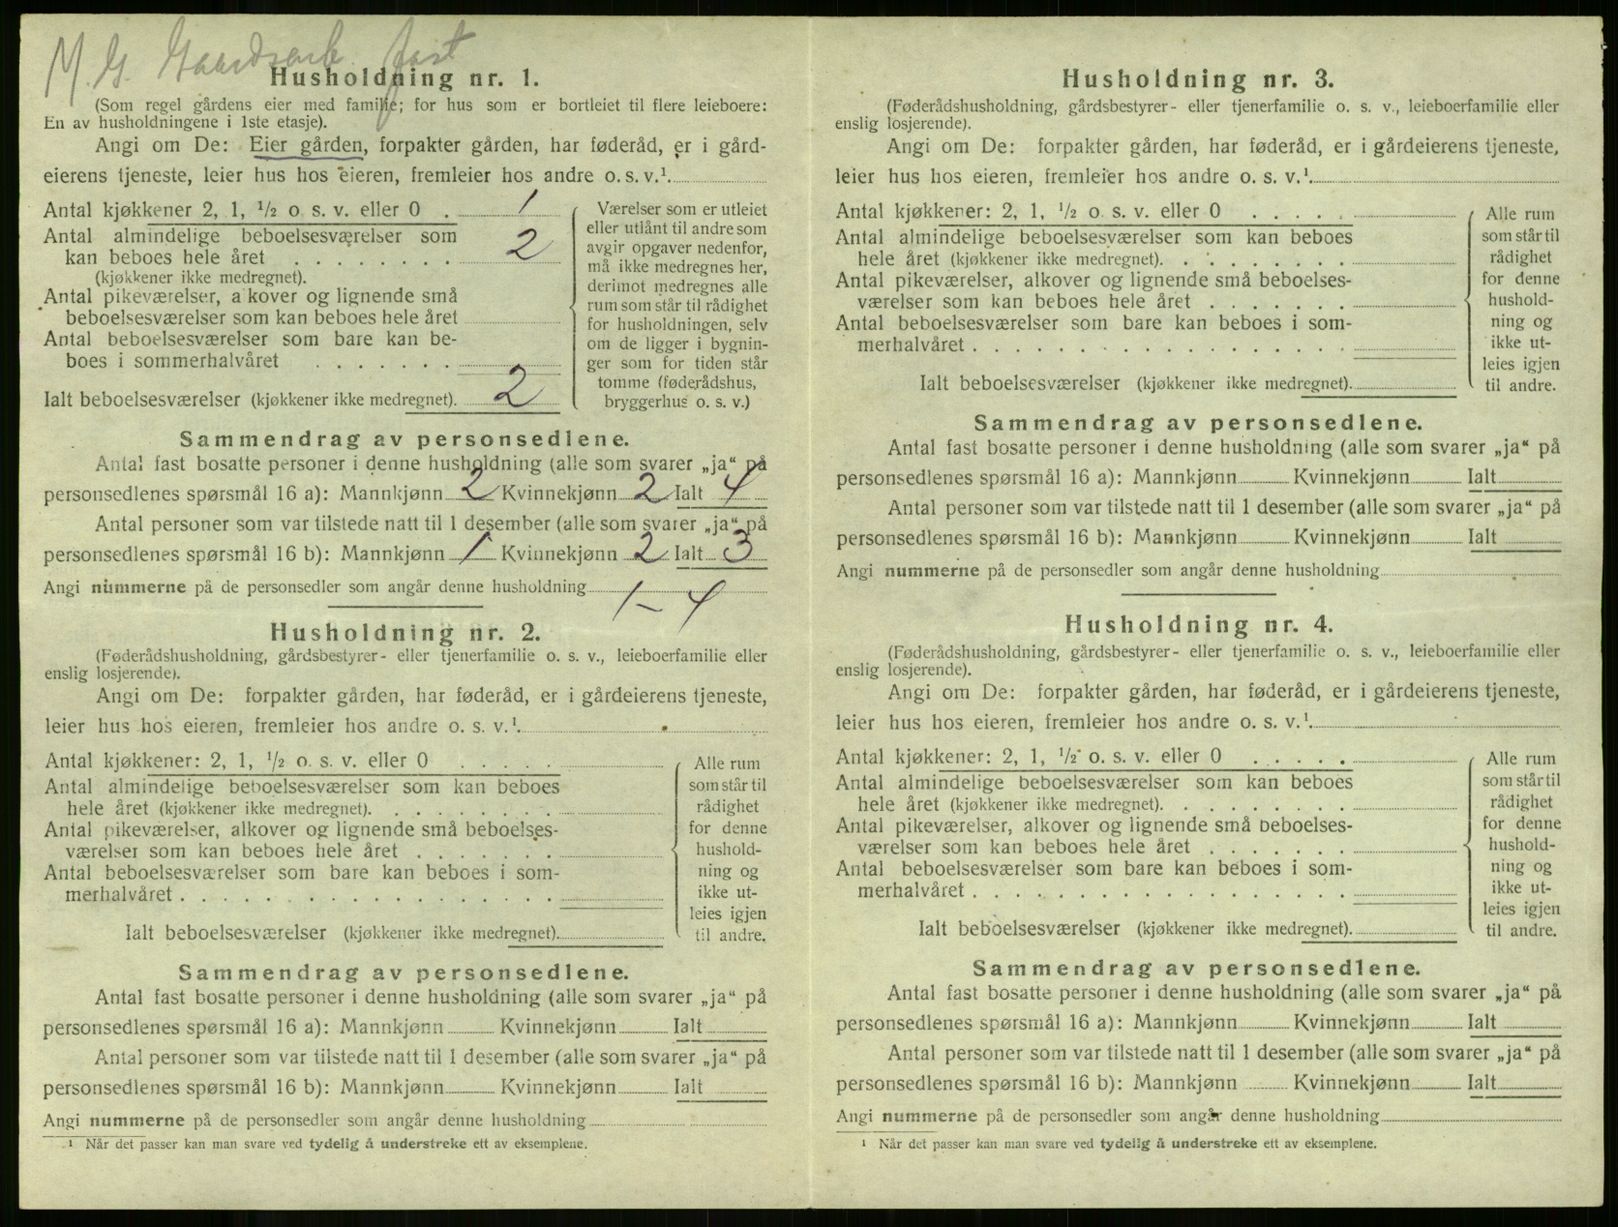 M. G. Gaardsarb. fast
Husholdning nr. 1.
(Som regel gårdens eier med familje; for hus som er bortleiet til flere leieboere:
En av husholdningene i 1ste etasje).
Angi om De: Eier gården, forpakter gården, har føderåd, er i gård-
eierens tjeneste, leier hus hos eieren, fremleier hos andre o. s. v.¹
Antal kjøkkener 2, 1, ½ o s. v. eller 0 . 1
Antal almindelige beboelsesværelser som
kan beboes hele året . . . . . . . . 2
(kjøkkener ikke medregnet).
Antal pikeværelser, a kover og lignende små
beboelsesværelser som kan beboes hele året
Antal beboelsesværelser som bare kan be-
boes i sommerhalvåret . . . . . . .
Ialt beboelsesværelser (kjøkkener ikke medregnet). 2
Værelser som er utleiet
eller utlånt til andre som
avgir opgaver nedenfor,
må ikke medregnes her,
derimot medregnes alle
rum som står til rådighet
for husholdningen, selv
om de ligger i bygnin-
ger som for tiden står
tomme (føderådshus,
bryggerhus o. s. v.)
Sammendrag av personsedlene.
Antal fast bosatte personer i denne husholdning (alle som svarer „ja“ på
personsedlenes spørsmål 16 a): Mannkjønn 2 Kvinnekjønn 2 Ialt 4
Antal personer som var tilstede natt til 1 desember (alle som svarer „ja“ på
personsedlenes spørsmål 16 b): Mannkjønn 1 Kvinnekjønn 2 Ialt 3
Angi nummerne på de personsedler som angår denne husholdning 1 – 4
Husholdning nr. 2.
(Føderådshusholdning, gårdsbestyrer- eller tjenerfamilie o. s. v., leieboerfamilie eller
enslig losjerende).
Angi om De: forpakter gården, har føderåd, er i gårdeierens tjeneste,
leier hus hos eieren, fremleier hos andre o. s. v.¹.
Antal kjøkkener: 2, 1, ½ o. s. v. eller 0 . . . . .
Antal almindelige beboelsesværelser som kan beboes
hele året (kjøkkener ikke medregnet). . . . . . . . .
Antal pikeværelser, alkover og lignende små beboelses-
værelser som kan beboes hele året . . . . . . .
Antal beboelsesværelser som bare kan beboes i som-
merhalvåret . . . . . . . . . . . . . . . . . .
Ialt beboelsesværelser (kjøkkener ikke medregnet).
Alle rum
som står til
rådighet
for denne
hushold-
ning og
ikke ut-
leies igjen
til andre.
Sammendrag av personsedlene.
Antal fast bosatte personer i denne husholdning (alle som svarer „ja“ på
personsedlenes spørsmål 16 a): Mannkjønn Kvinnekjønn Ialt
Antal personer som var tilstede natt til 1 desember (alle som svarer „ja“ på
personsedlenes spørsmål 16 b): Mannkjønn Kvinnekjønn Ialt
Angi nummerne på de personsedler som angår denne husholdning
¹ Når det passer kan man svare ved tydelig å understreke ett av eksemplene.
Husholdning nr. 3.
(Føderådshusholdning, gårdsbestyrer- eller tjenerfamilie o. s. v., leieboerfamilie eller
enslig losjerende).
Angi om De: forpakter gården, har føderåd, er i gårdeierens tjeneste,
leier hus hos eieren, fremleier hos andre o. s. v.¹.
Antal kjøkkener: 2, 1, ½ o. s. v. eller 0 . . . . .
Antal almindelige beboelsesværelser som kan beboes
hele året (kjøkkener ikke medregnet). . . . . . . . .
Antal pikeværelser, alkover og lignende små beboelses-
værelser som kan beboes hele året . . . . . . .
Antal beboelsesværelser som bare kan beboes i som-
merhalvåret . . . . . . . . . . . . . . . . . .
Ialt beboelsesværelser (kjøkkener ikke medregnet).
Alle rum
som står til
rådighet
for denne
hushold-
ning og
ikke ut-
leies igjen
til andre.
Sammendrag av personsedlene.
Antal fast bosatte personer i denne husholdning (alle som svarer „ja“ på
personsedlenes spørsmål 16 a): Mannkjønn Kvinnekjønn Ialt
Antal personer som var tilstede natt til 1 desember (alle som svarer „ja“ på
personsedlenes spørsmål 16 b): Mannkjønn Kvinnekjønn Ialt
Angi nummerne på de personsedler som angår denne husholdning
Husholdning nr. 4.
(Føderådshusholdning, gårdsbestyrer- eller tjenerfamilie o. s. v., leieboerfamilie eller
enslig losjerende).
Angi om De: forpakter gården, har føderåd, er i gårdeierens tjeneste,
leier hus hos eieren, fremleier hos andre o. s. v.¹.
Antal kjøkkener: 2, 1, ½ o. s. v. eller 0 . . . . .
Antal almindelige beboelsesværelser som kan beboes
hele året (kjøkkener ikke medregnet). . . . . . . . .
Antal pikeværelser, alkover og lignende små beboelses-
værelser som kan beboes hele året . . . . . . .
Antal beboelsesværelser som bare kan beboes i som-
merhalvåret . . . . . . . . . . . . . . . . . .
Ialt beboelsesværelser (kjøkkener ikke medregnet).
Alle rum
som står til
rådighet
for denne
hushold-
ning og
ikke ut-
leies igjen
til andre.
Sammendrag av personsedlene.
Antal fast bosatte personer i denne husholdning (alle som svarer „ja“ på
personsedlenes spørsmål 16 a): Mannkjønn Kvinnekjønn Ialt
Antal personer som var tilstede natt til 1 desember (alle som svarer „ja“ på
personsedlenes spørsmål 16 b): Mannkjønn Kvinnekjønn Ialt
Angi nummerne på de personsedler som angår denne husholdning
¹ Når det passer kan man svare ved tydelig å understreke ett av eksemplene.